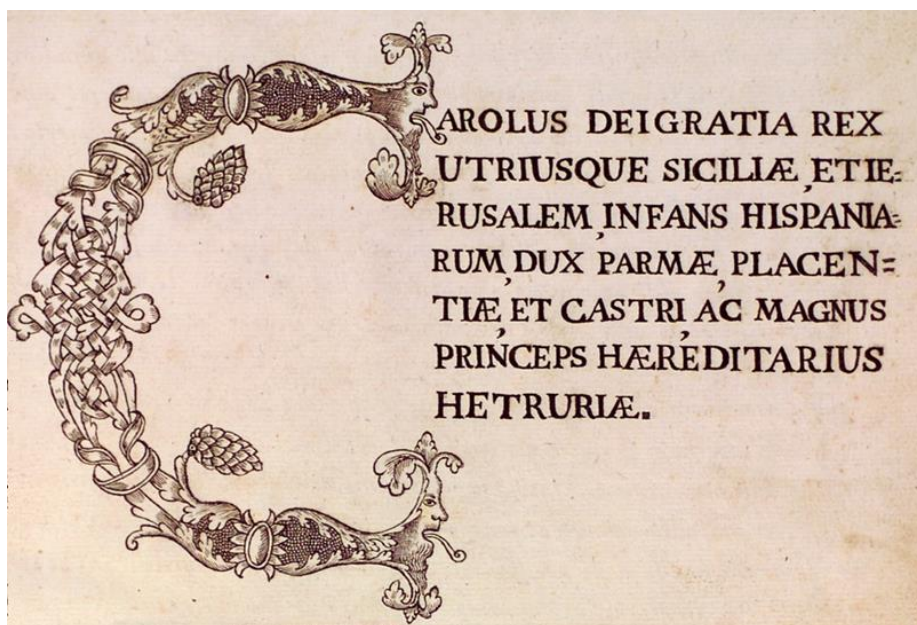 CAROLUS DEI GRATIA REX
UTRIUSQUE SICILIÆ, ET IE=
RUSALEM, INFANS HISPANIA=
RUM, DUX PARMÆ, PLACEN=
TIÆ, ET CASTRI, AC MAGNUS
PRINCEPS HÆREDITARIUS
HETRURIÆ.